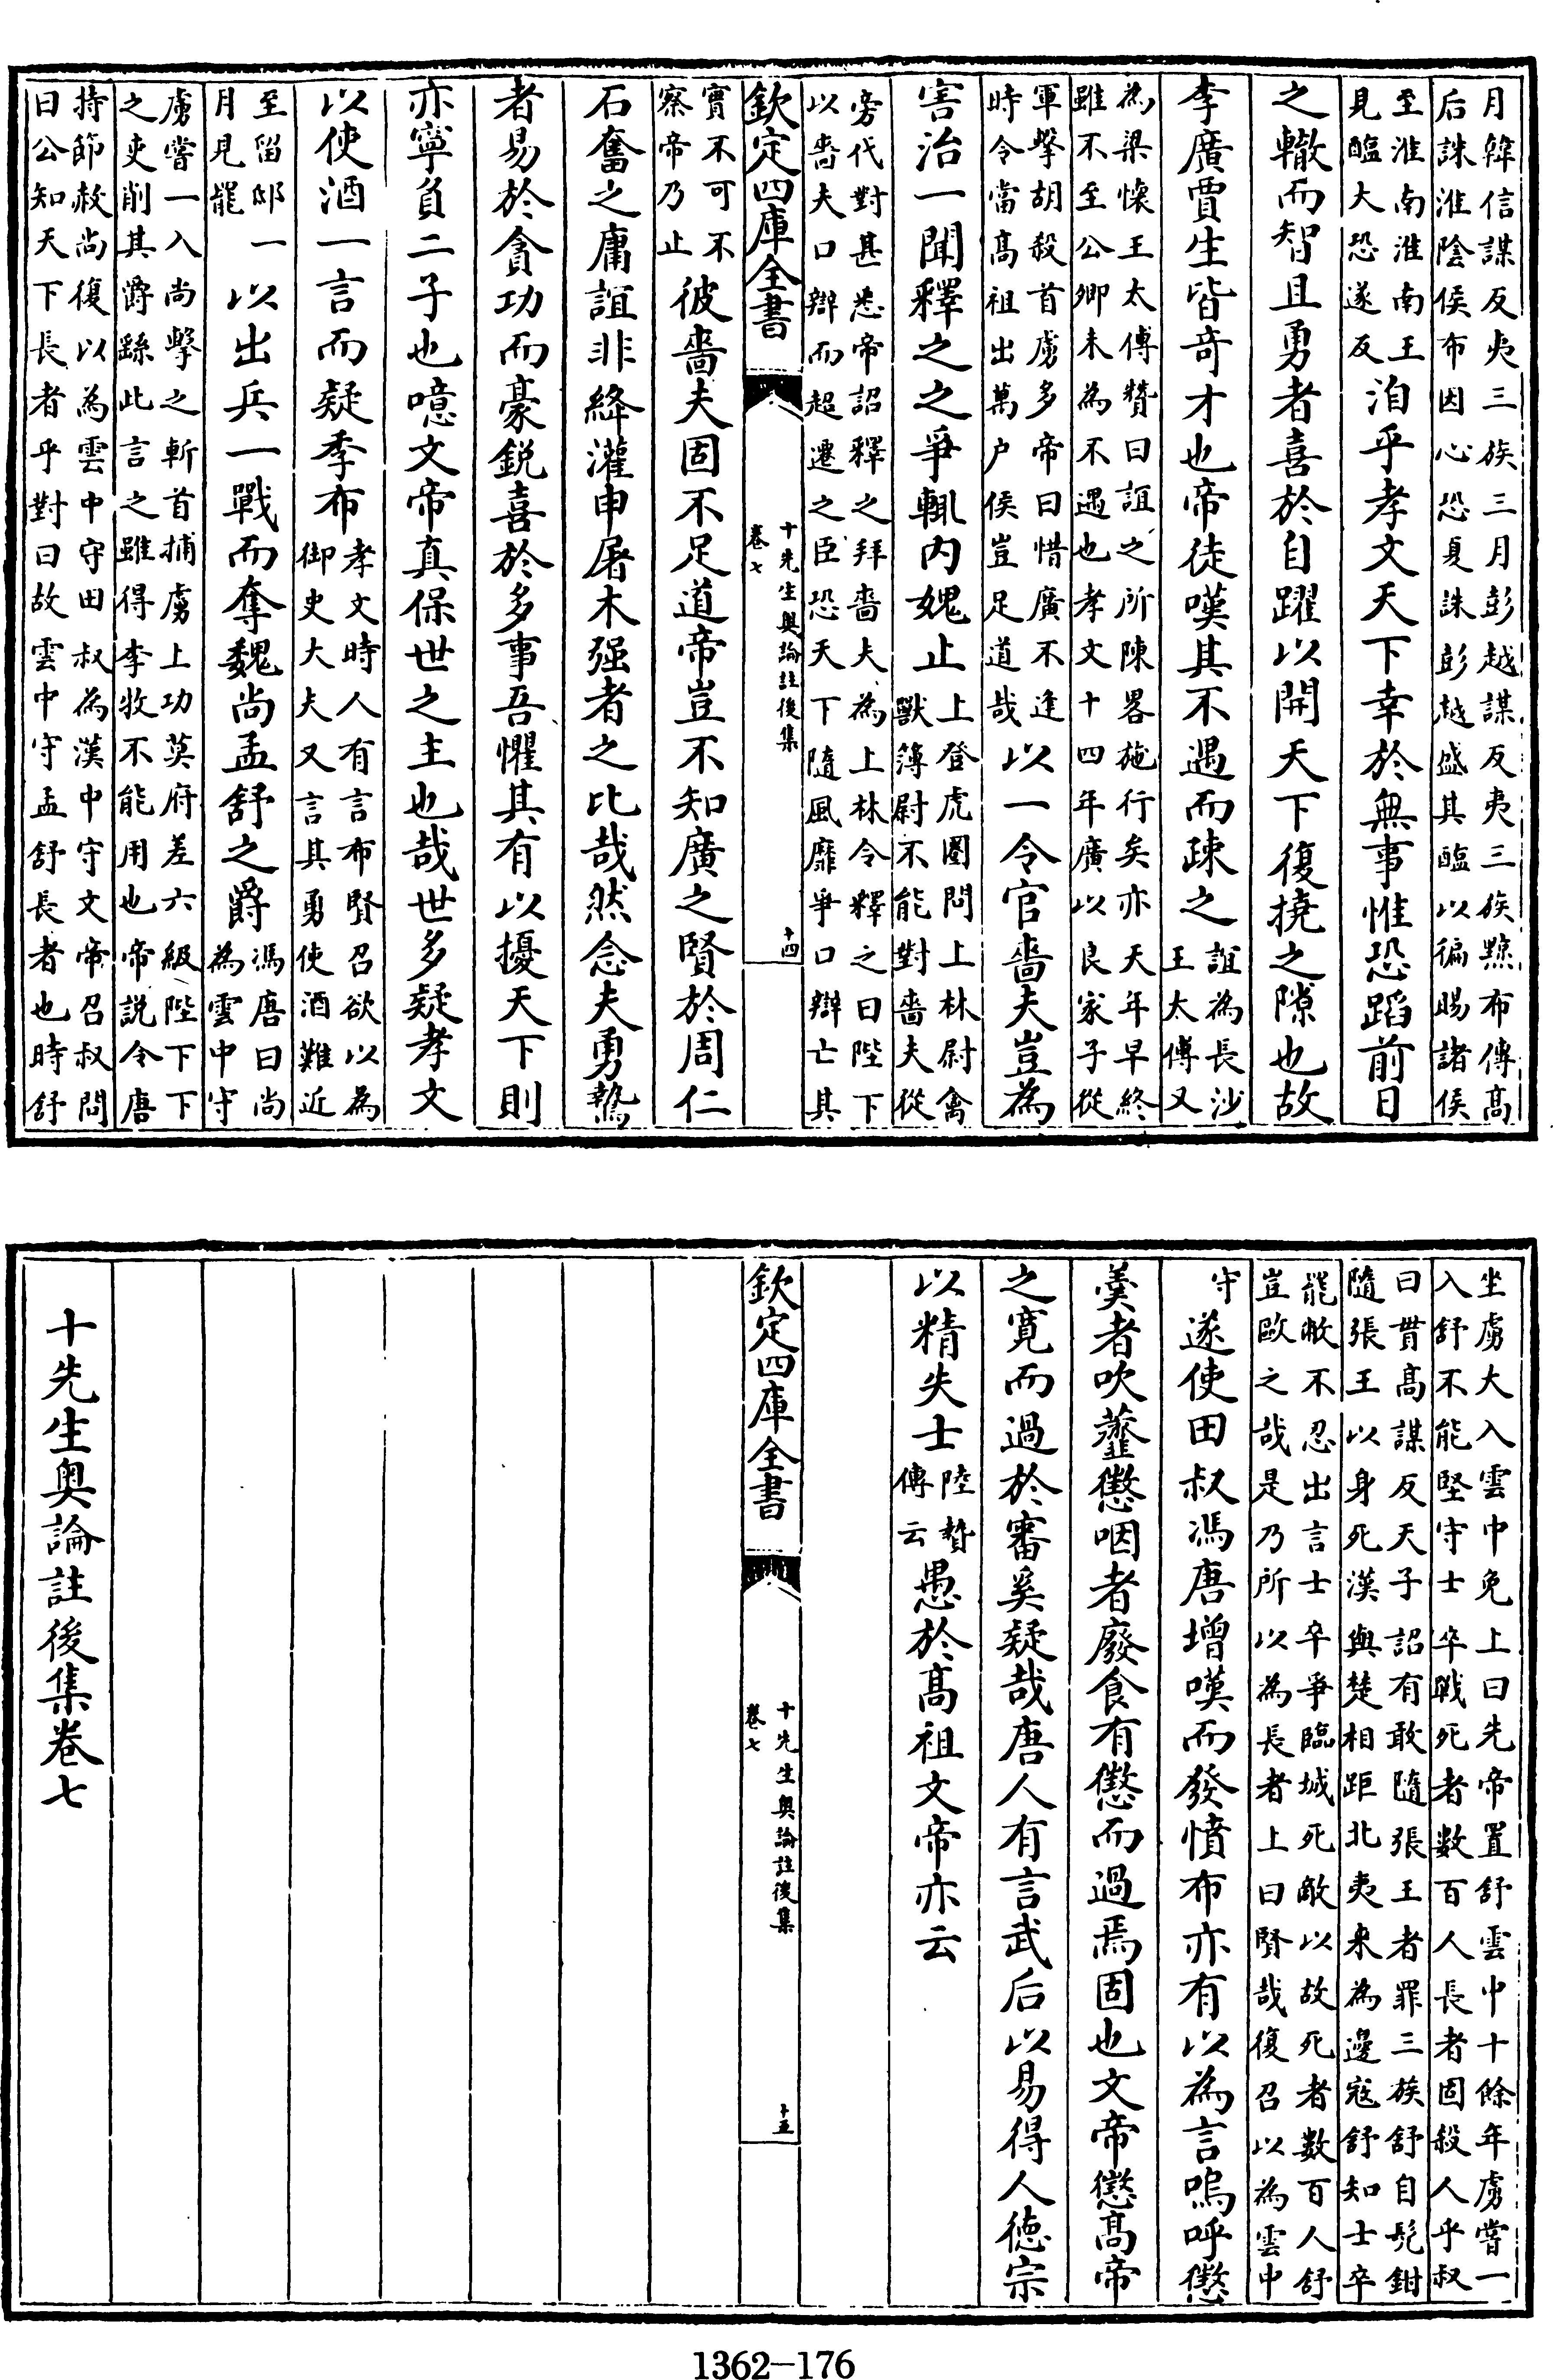 月韓信謀反夷三族三月彭越謀反夷三族黥布傳髙
后誅淮陰侯布因心恐夏誅彭越盛其醢以徧賜諸侯
至淮南淮南王見醢大恐遂反洎乎孝文天下幸於無事惟恐蹈前日
之轍而智且勇者喜於自躍以開天下復撓之隙也故
李廣賈生皆竒才也帝徒嘆其不遇而疎之誼為長沙王太傅又
為梁懐王太傅贊曰誼之所陳畧施行矣亦天年早終
雖不至公卿未為不遇也孝文十四年廣以良家子從
軍擊胡殺首虜多帝曰惜廣不逢時令當髙祖出萬户侯豈足道哉以一令官嗇夫豈為
害治一聞釋之之爭輒内媿止上登虎圈問上林尉禽獸簿尉不能對嗇夫從
旁代對甚悉帝詔釋之拜嗇夫為上林令釋之曰陛下
以嗇夫口辯而超遷之臣恐天下隨風靡爭口辯亡其
欽定四庫全書
十先生奥論註後集
卷七
十四
實不可不察帝乃止彼嗇夫固不足道帝豈不知廣之賢於周仁
石奮之庸誼非絳灌申屠木强者之比哉然念夫勇驁
者易於貪功而豪鋭喜於多事吾懼其有以擾天下則
亦寧負二子也噫文帝真保世之主也哉世多疑孝文
以使酒一言而疑季布孝文時人有言布賢召欲以為御史大夫又言其勇使酒難近
至留邸一月見罷以出兵一戰而奪魏尚孟舒之爵馮唐曰尚為雲中守
虜嘗一入尚擊之斬首捕虜上功莫府差六級陛下下
之吏削其爵繇此言之雖得李牧不能用也帝説令唐
持節赦尚復以為雲中守田叔為漢中守文帝召叔問
曰公知天下長者乎對曰故雲中守孟舒長者也時舒
坐虜大入雲中免上曰先帝置舒雲中十餘年虜嘗一
入舒不能堅守士卒戰死者數百人長者固殺人乎叔
曰貫髙謀反天子詔有敢隨張王者罪三族舒自髠鉗
隨張王以身死漢與楚相距北夷来為邊寇舒知士卒
罷敝不忍出言士卒爭臨城死敵以故死者數百人舒
豈歐之哉是乃所以為長者上曰賢哉復召以為雲中
守遂使田叔馮唐增嘆而發憤布亦有以為言嗚呼懲
羮者吹虀懲咽者廢食有懲而過焉固也文帝懲髙帝
之寛而過於審奚疑哉唐人有言武后以易得人徳宗
以精失士陸贄傳云愚於髙祖文帝亦云
欽定四庫全書
十先生奥論註後集
卷七
十五
十先生奥論註後集卷七
1362-176